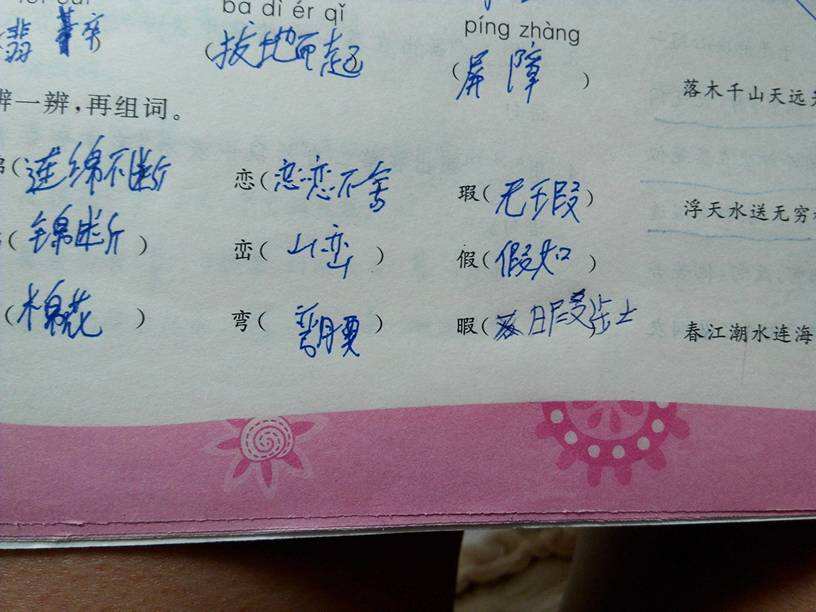 bá dì ér qǐ
píng zhàng
翡 翠
(拔地而起
(屏障 )
落木千山天远
辨一辨,再组词。
(连绵不断
恋(恋恋不舍
瑕(无瑕 )
浮天水送无穷
(锦断 )
峦( 山峦 )
假(假如 )
(棉花 )
弯( 弯腰 )
暇(
春江潮水连海